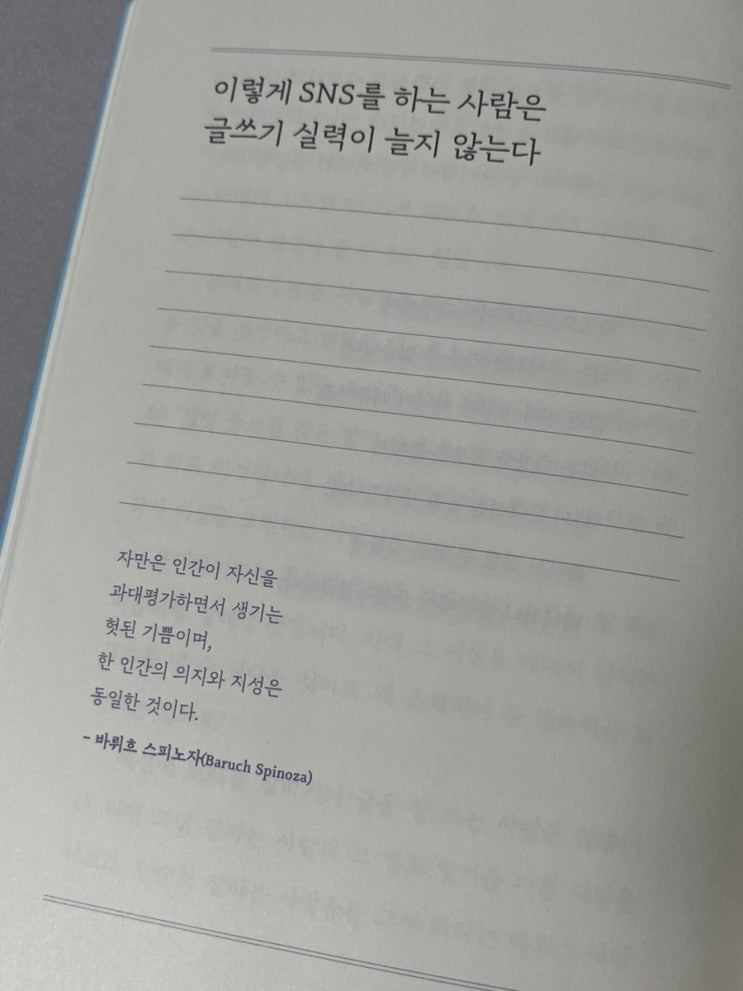 이렇게 SNS를 하는 사람은
글쓰기 실력이 늘지 않는다
자만은 인간이 자신을
과대평가하면서 생기는
헛된 기쁨이며,
한 인간의 의지와 지성은
동일한 것이다.
– 바뤼흐 스피노자(Baruch Spinoza)